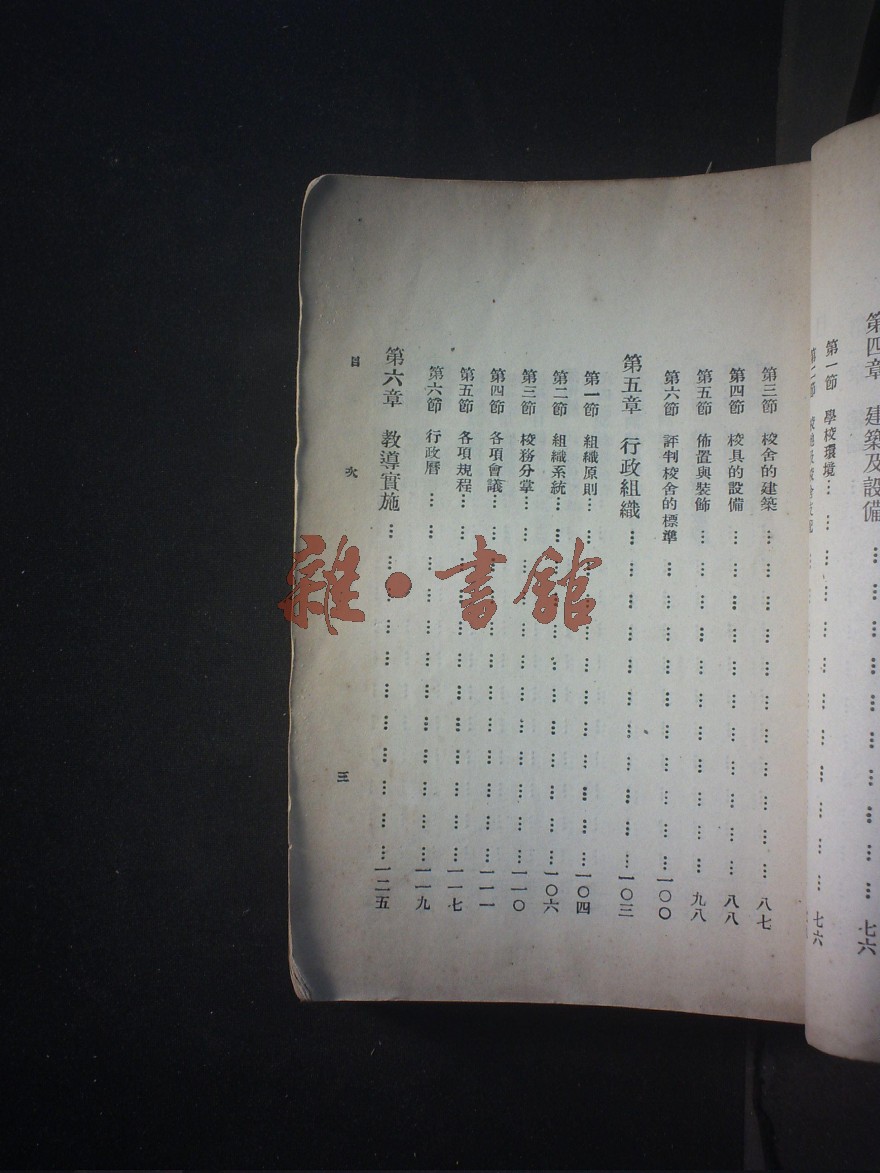 第四章 建築及設備………………………………七六
第一節 學校環境………………………………七六
第三節 校舍的建築………………………………八七
第四節 校具的設備………………………………八八
第五節 佈置與裝飾………………………………九八
第六節 評判校舍的標準………………………………一〇〇
第五章 行政組織………………………………一〇三
第一節 組織原則………………………………一〇四
第二節 組織系統………………………………一〇六
第三節 校務分掌………………………………一一〇
第四節 各項會議………………………………一一一
第五節 各項規程………………………………一一七
第六節 行政曆………………………………一一九
第六章 教導實施………………………………一二五
目次 三
雜·書館